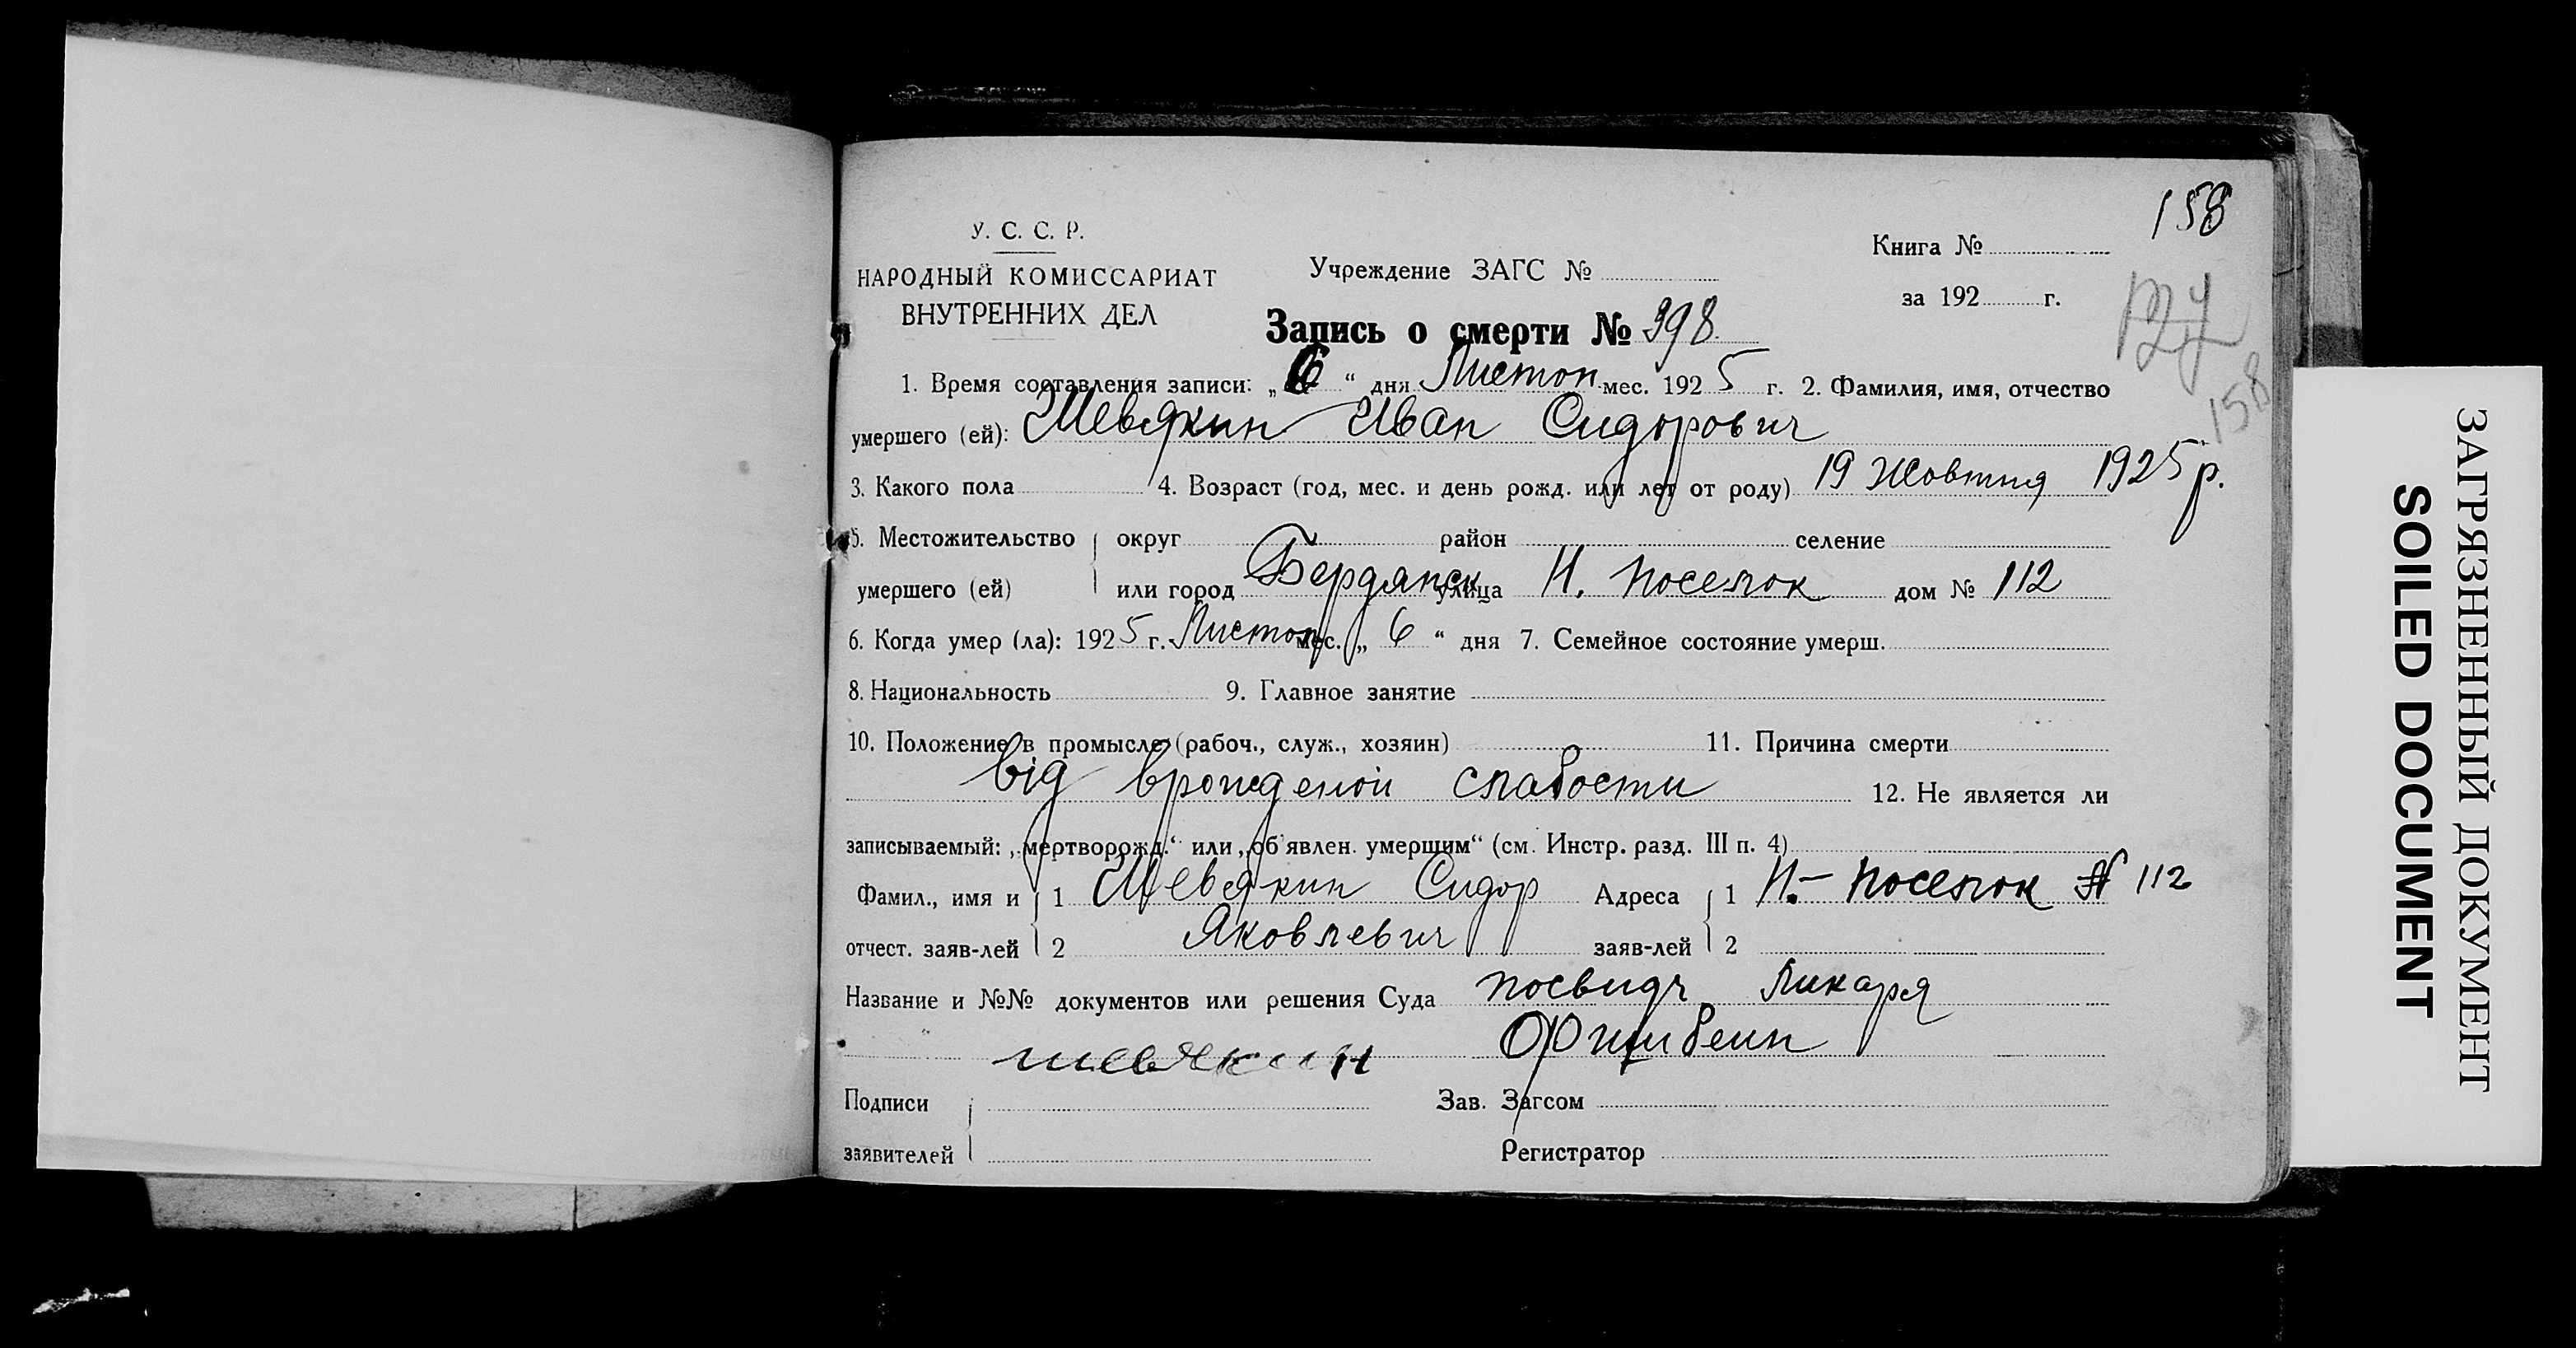 158
У. С. С. Р.
НАРОДНЫЙ КОМИССАРИАТ
ВНУТРЕННИХ ДЕЛ
Учреждение ЗАГС №
Книга №
за 192 г.
Запись о смерти № 398
158
1. Время составления записи: „6“ дня Листоп мес. 1925 г. 2. Фамилия, имя, отчество
умершего (ей): Шевякин Иван Сидорович
3. Какого пола 4. Возраст (год, мес. и день рожд. или лет от роду) 19 Жовтня 1925 р.
5. Местожительство округ район селение
умершего (ей) или город Бердянск улица Н. поселок дом № 112
6. Когда умер (ла): 1925 г. Листоп мес. „6“ дня 7. Семейное состояние умерш.
8. Национальность 9. Главное занятие
10. Положение в промысле (рабоч., служ., хозяин) 11. Причина смерти
від врожденой слабости 12. Не является ли
записываемый: „мертворожд.“ или „об'явлен. умершим“ (см. Инстр. разд. III п. 4)
Фамил., имя и 1 Шевякин Сидор Адреса 1 Н.- поселок № 112
отчест. заяв-лей 2 Яковлевич заяв-лей 2
Название и №№ документов или решения Суда посвидч Ликаря
шевякин Фишбейн
Подписи Зав. Загсом
заявителей Регистратор
ЗАГРЯЗНЕННЫЙ ДОКУМЕНТ
SOILED DOCUMENT